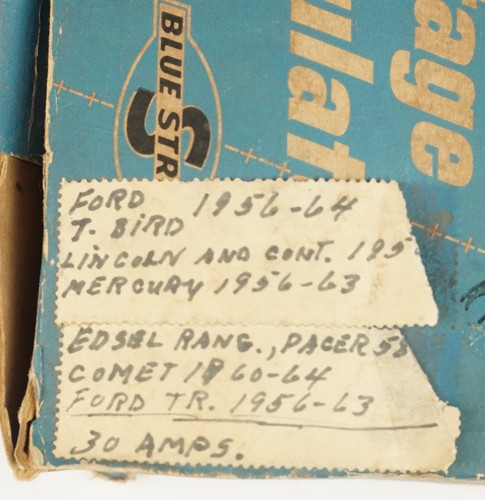 BLUE STR
S
tage
ulat
FORD 1956-64
T. BIRD
LINCOLN AND CONT. 195
MERCURY 1956-63
EDSEL RANG., PACER 58
COMET 1960-64
FORD TR. 1956-63
30 AMPS.